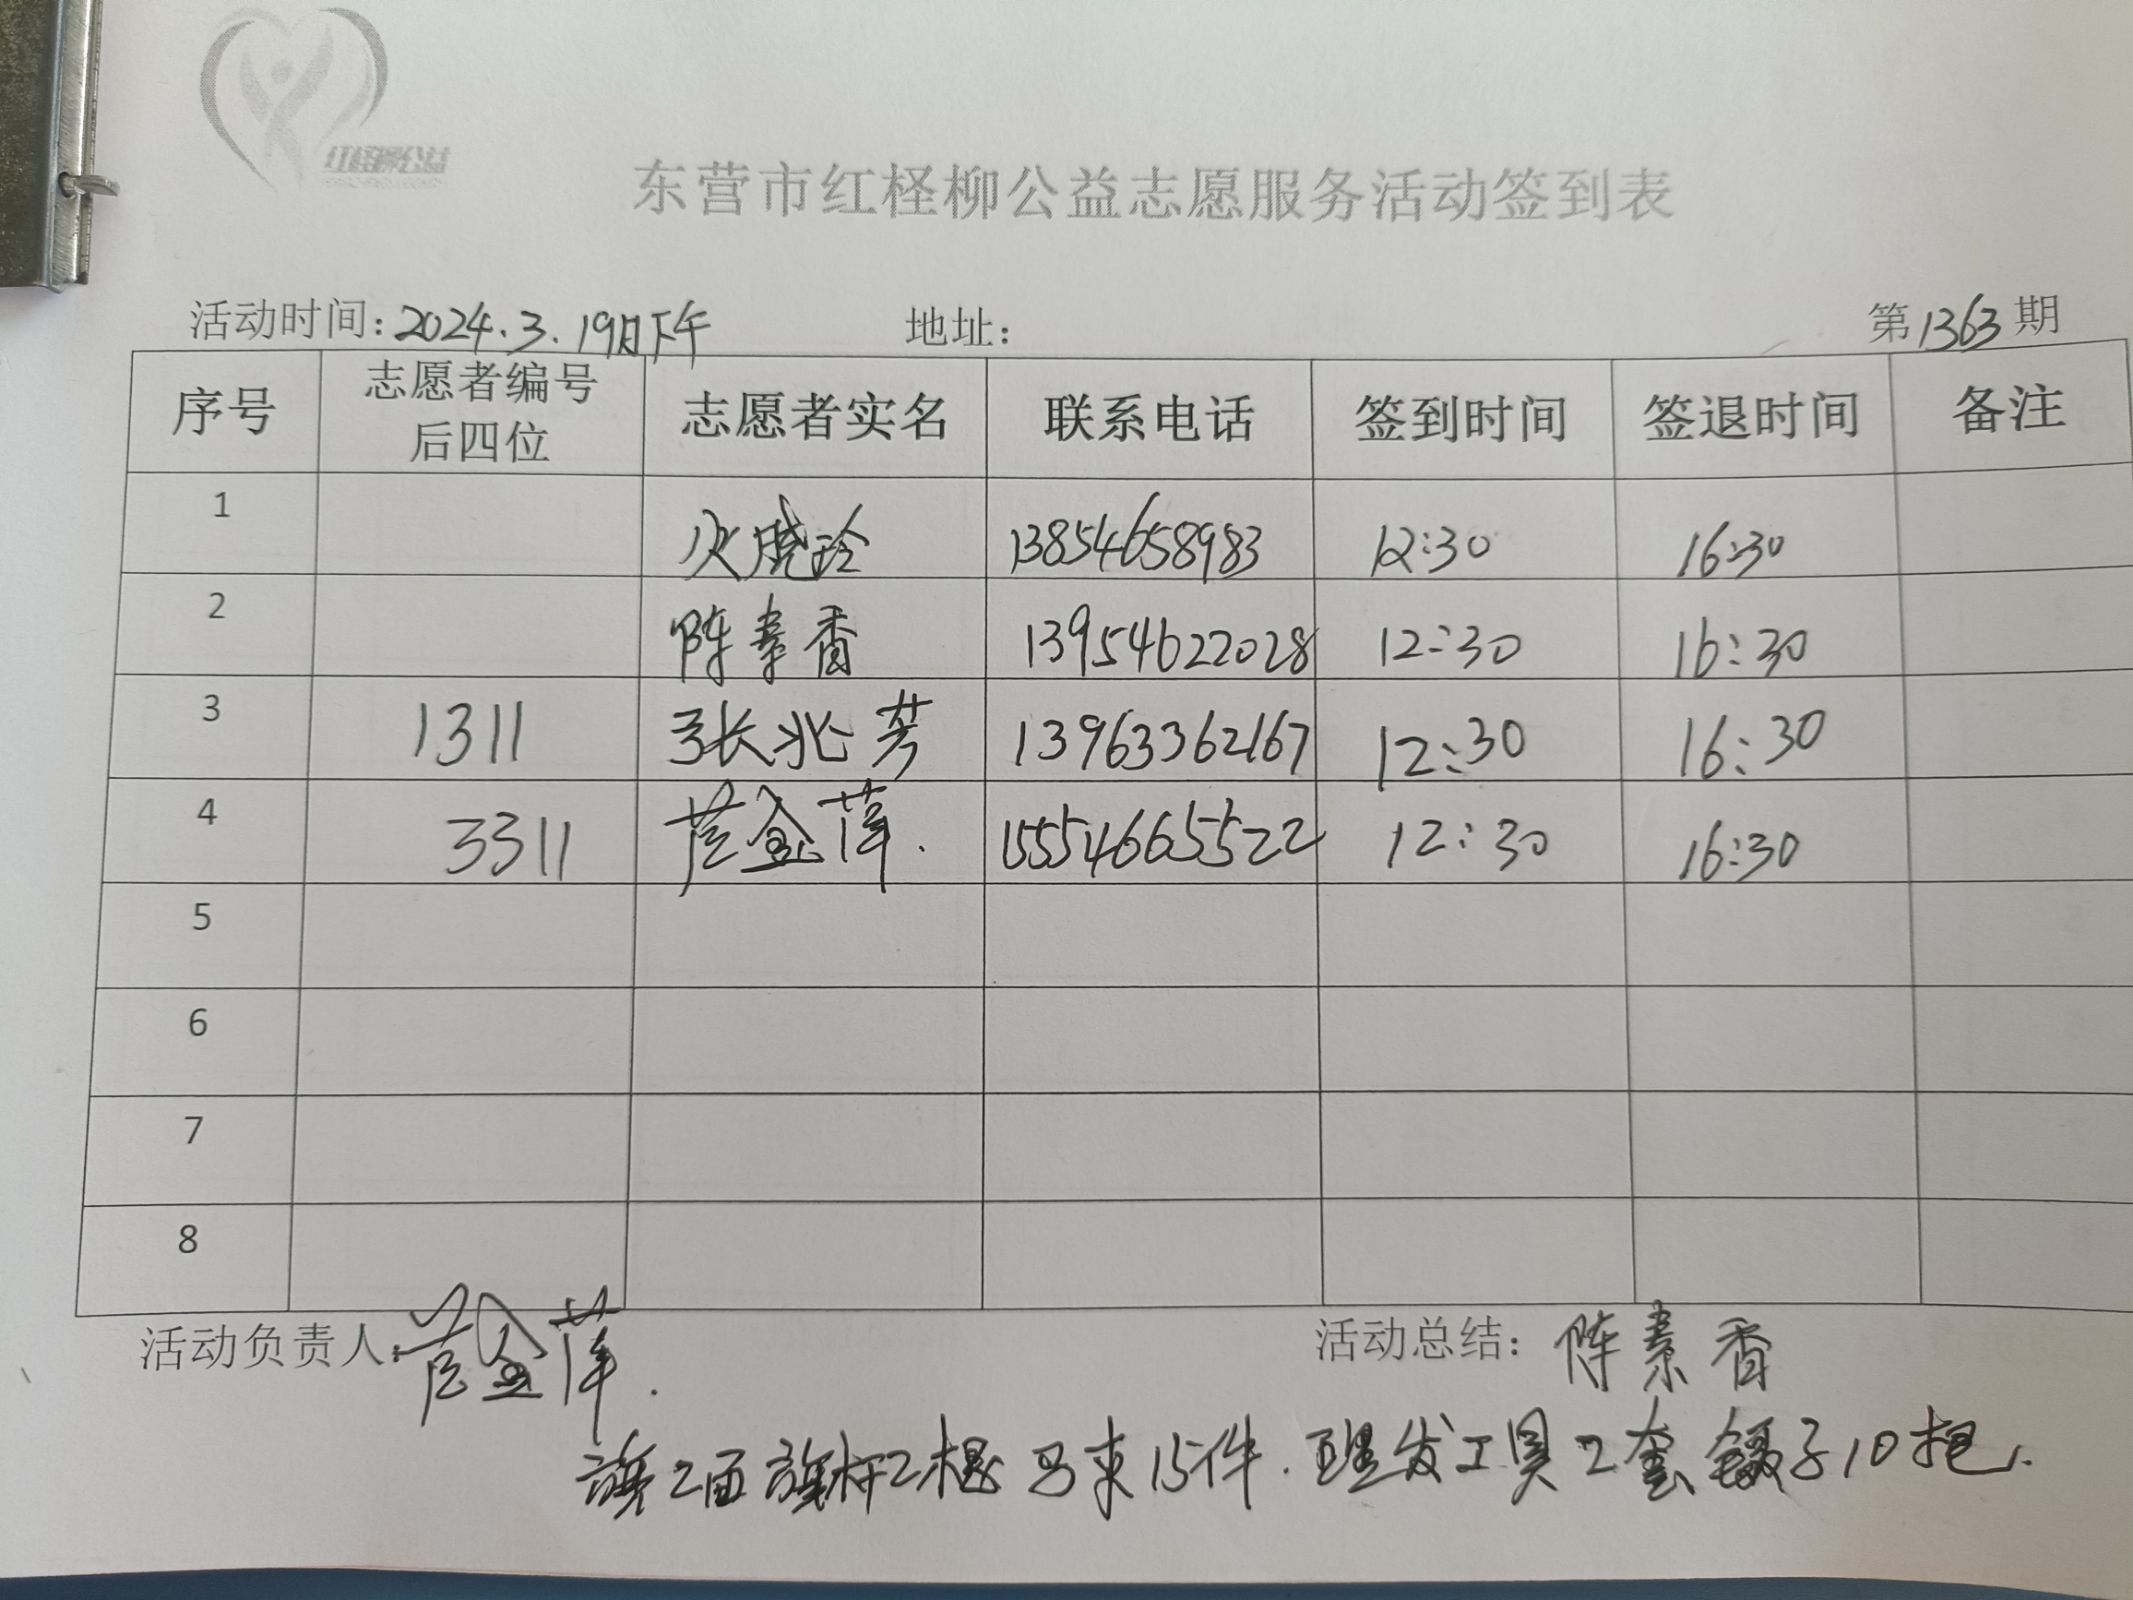 红柽柳公益
东营市红柽柳公益志愿服务活动签到表
活动时间：2024.3.19日下午 地址： 第1363期
序号 志愿者编号后四位 志愿者实名 联系电话 签到时间 签退时间 备注
1 晓玲 13854658983 12:30 16:30
2 陈素香 13954622028 12:30 16:30
3 1311 张兆芳 13963362167 12:30 16:30
4 3311 金萍. 15554665522 12:30 16:30
5
6
7
8
活动负责人： 金萍. 活动总结：陈素香
旗2面旗杆2根马夹15件.理发工具2套镊子10把.